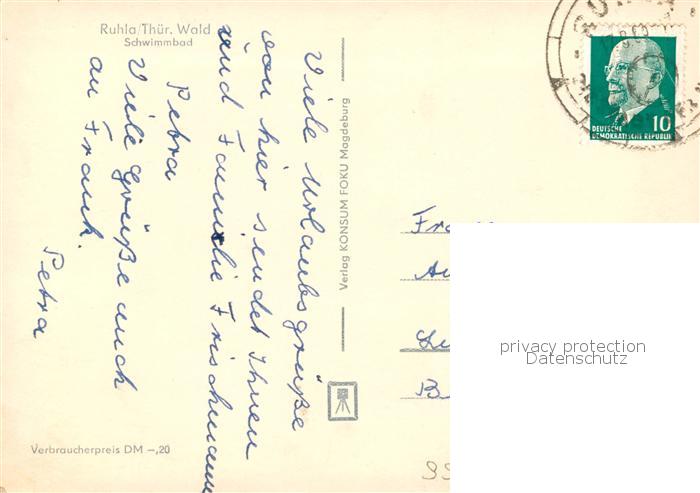 Ruhla/Thür. Wald
Schwimmbad
Viele Urlaubsgrüße
von hier sendet Ihnen
und Familie Frischmann
Petra
Viele Grüße auch
an Frank.
Petra
Verbraucherpreis DM –,20
Verlag KONSUM FOKU Magdeburg
10
DEUTSCHE
DEMOKRATISCHE REPUBLIK
privacy protection
Datenschutz